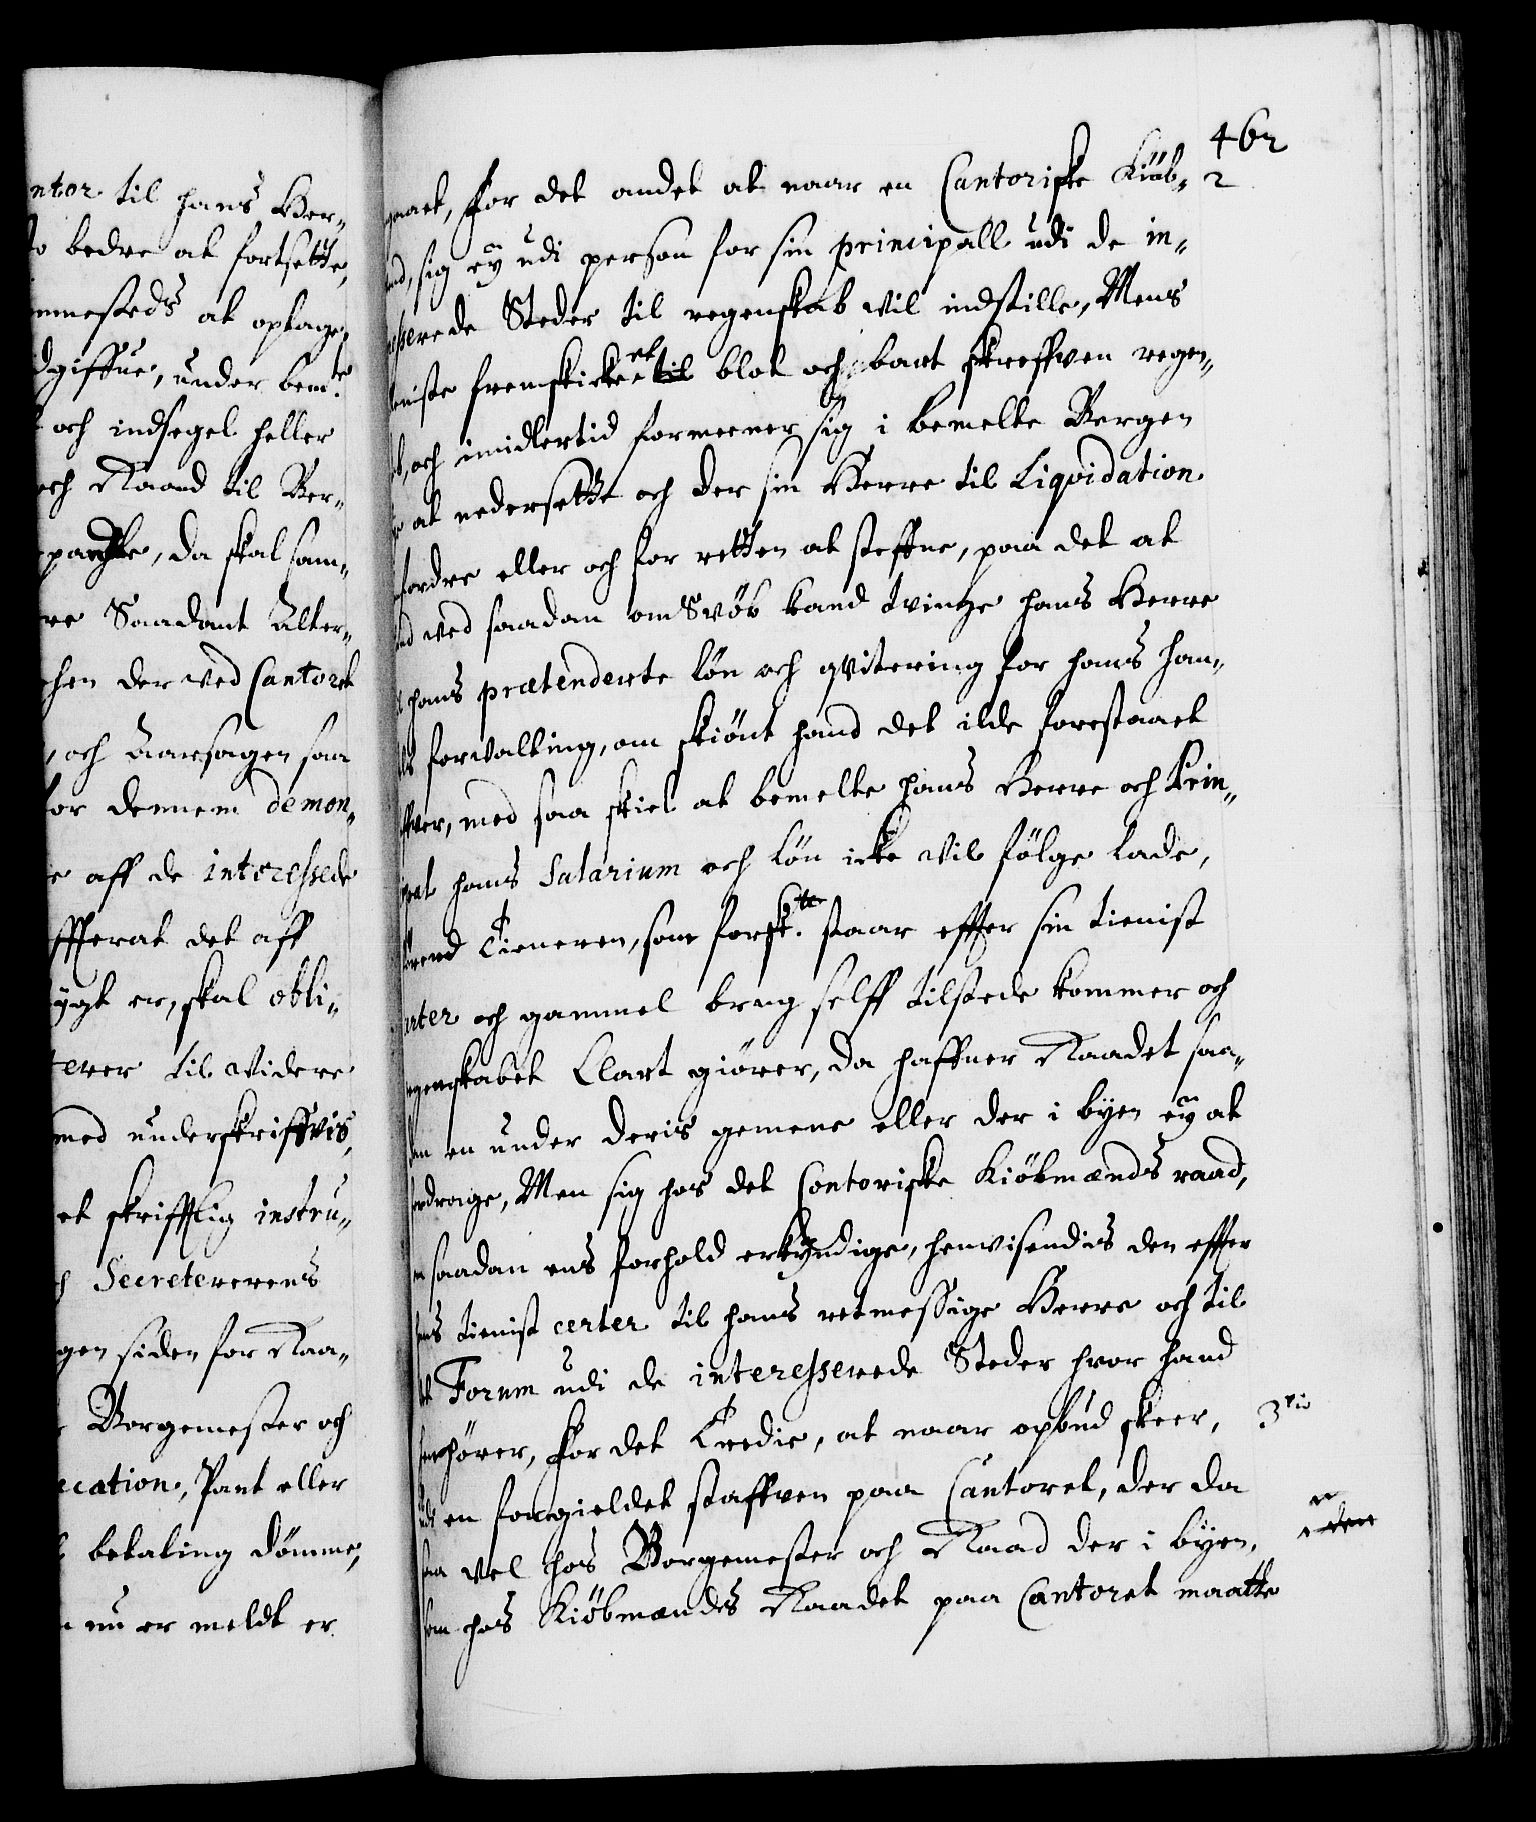 ntor til hans Her¬
o bedre at fortsette,
mmesteds at optage,
dgiffue, under bemte
och indsegel heller
och Raad til Ber¬
pachte, da skal sam¬
re Saadant Alter¬
chen der ved Cantoret
, och Aarsagen saa
for dennem demon¬
e aff de interessede
ffterat det aff
ygt er, skal obli¬
terer til videre
med underskriffvis,
et skrifftlig instru¬
h Secretererens
gen siden for Raa¬
Borgemester och
cation, Pant eller
betaling dömme,
nu er meldt er
462
gaaet, For det andet at naar en Cantoriske Kiöb¬ 2
nd, sig eÿ udi person for sin principall udi de in¬
sserede Steder til regenskab vil indstille, Mens
eniste fremskicker et til blot och bart skreffven regen¬
b, och imidlertid formeener sig i bemelte Bergen
at nedersette och der sin Herre til Liqvidation
fordre eller och for retten at steffne, paa det at
nd ved saadan omSvöb kand tvinge hans Herre
l hans prætenderte lön och qvitering for hans han¬
ls forvalting, om skiönt hand det ilde forestaaet
ffver, med saa skiel at bemelte hans Herre och Prin¬
ipal hans Salarium och lön icke vil fölge lade,
förend Tieneren, som forskte. staar effter sin tienist
arter och gammel brug selff tilstede kommer och
egenskabet Clart giörer, da haffuer Raadet saa¬
dan en under deris gemene eller der i byen eÿ at
fordrage, Men sig hos det Contoriske Kiöbmænds raad,
m saadan ens forhold erkyndige, henvisendis den effter
hans tienist certer til hans retmessige Herre och til
et Forum udi de interesserede Steder hvor hand
henhörer, For det Tredie, at naar opbud skeer, 3tio
udi en forgieldet staffven paa Cantoret, der da
saa vel hos Borgemester och Raad der i byen,
som hos Kiöbmands Raadet paa Cantoret maatte